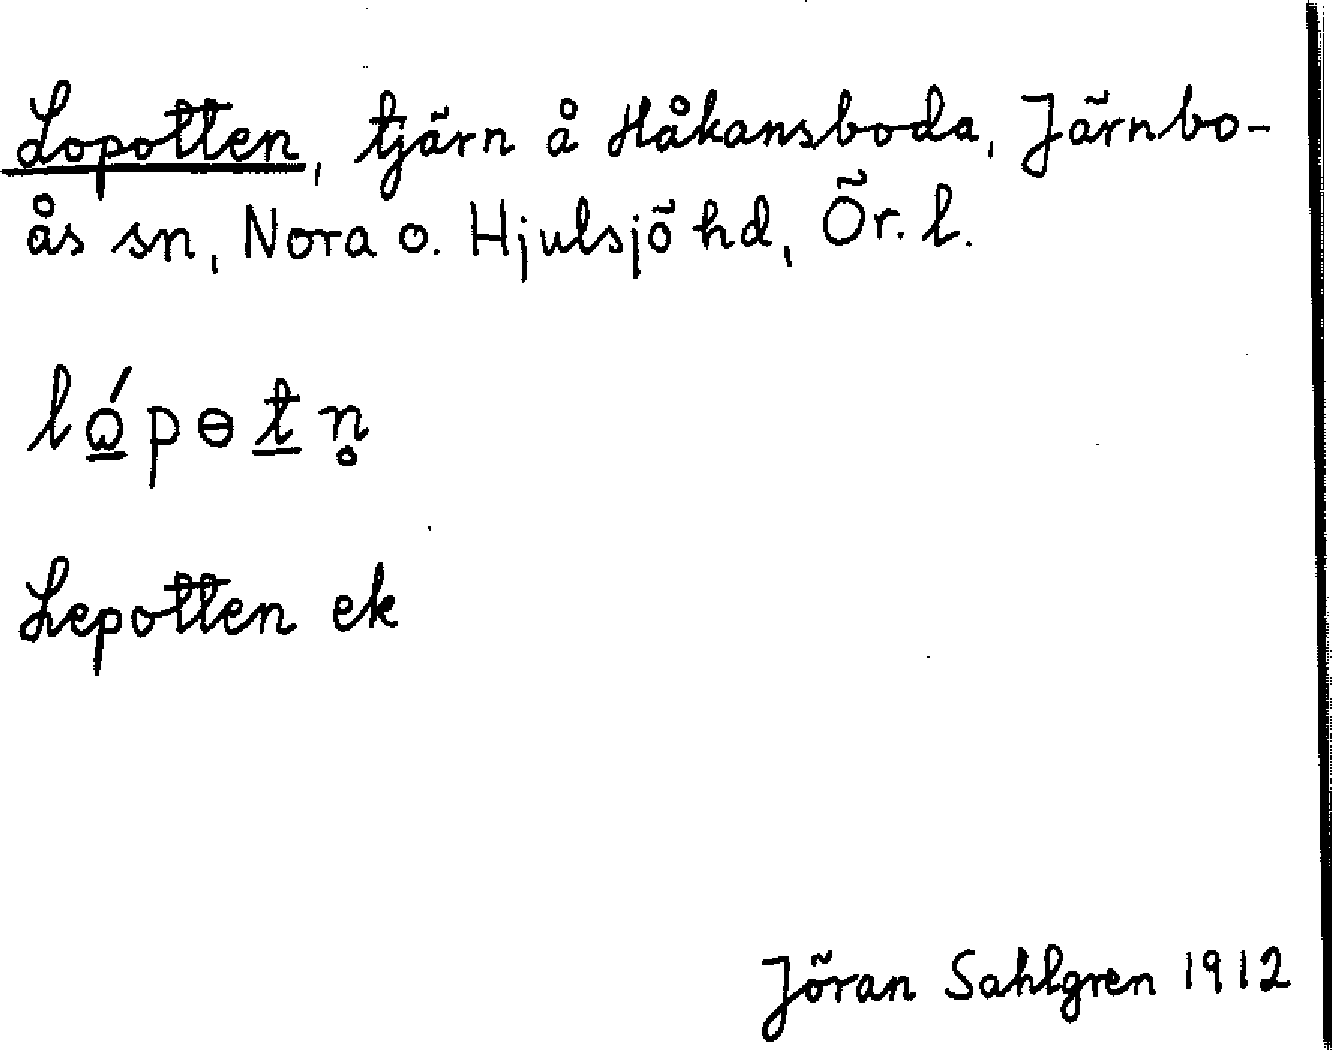 Lopotten, tjärn å Håkansboda, Järnbo-
ås sn, Nora o. Hjulsjö hd, Ör. l.
lώ̲pɵt̲n̥
Lepotten ek
Jöran Sahlgren 1912